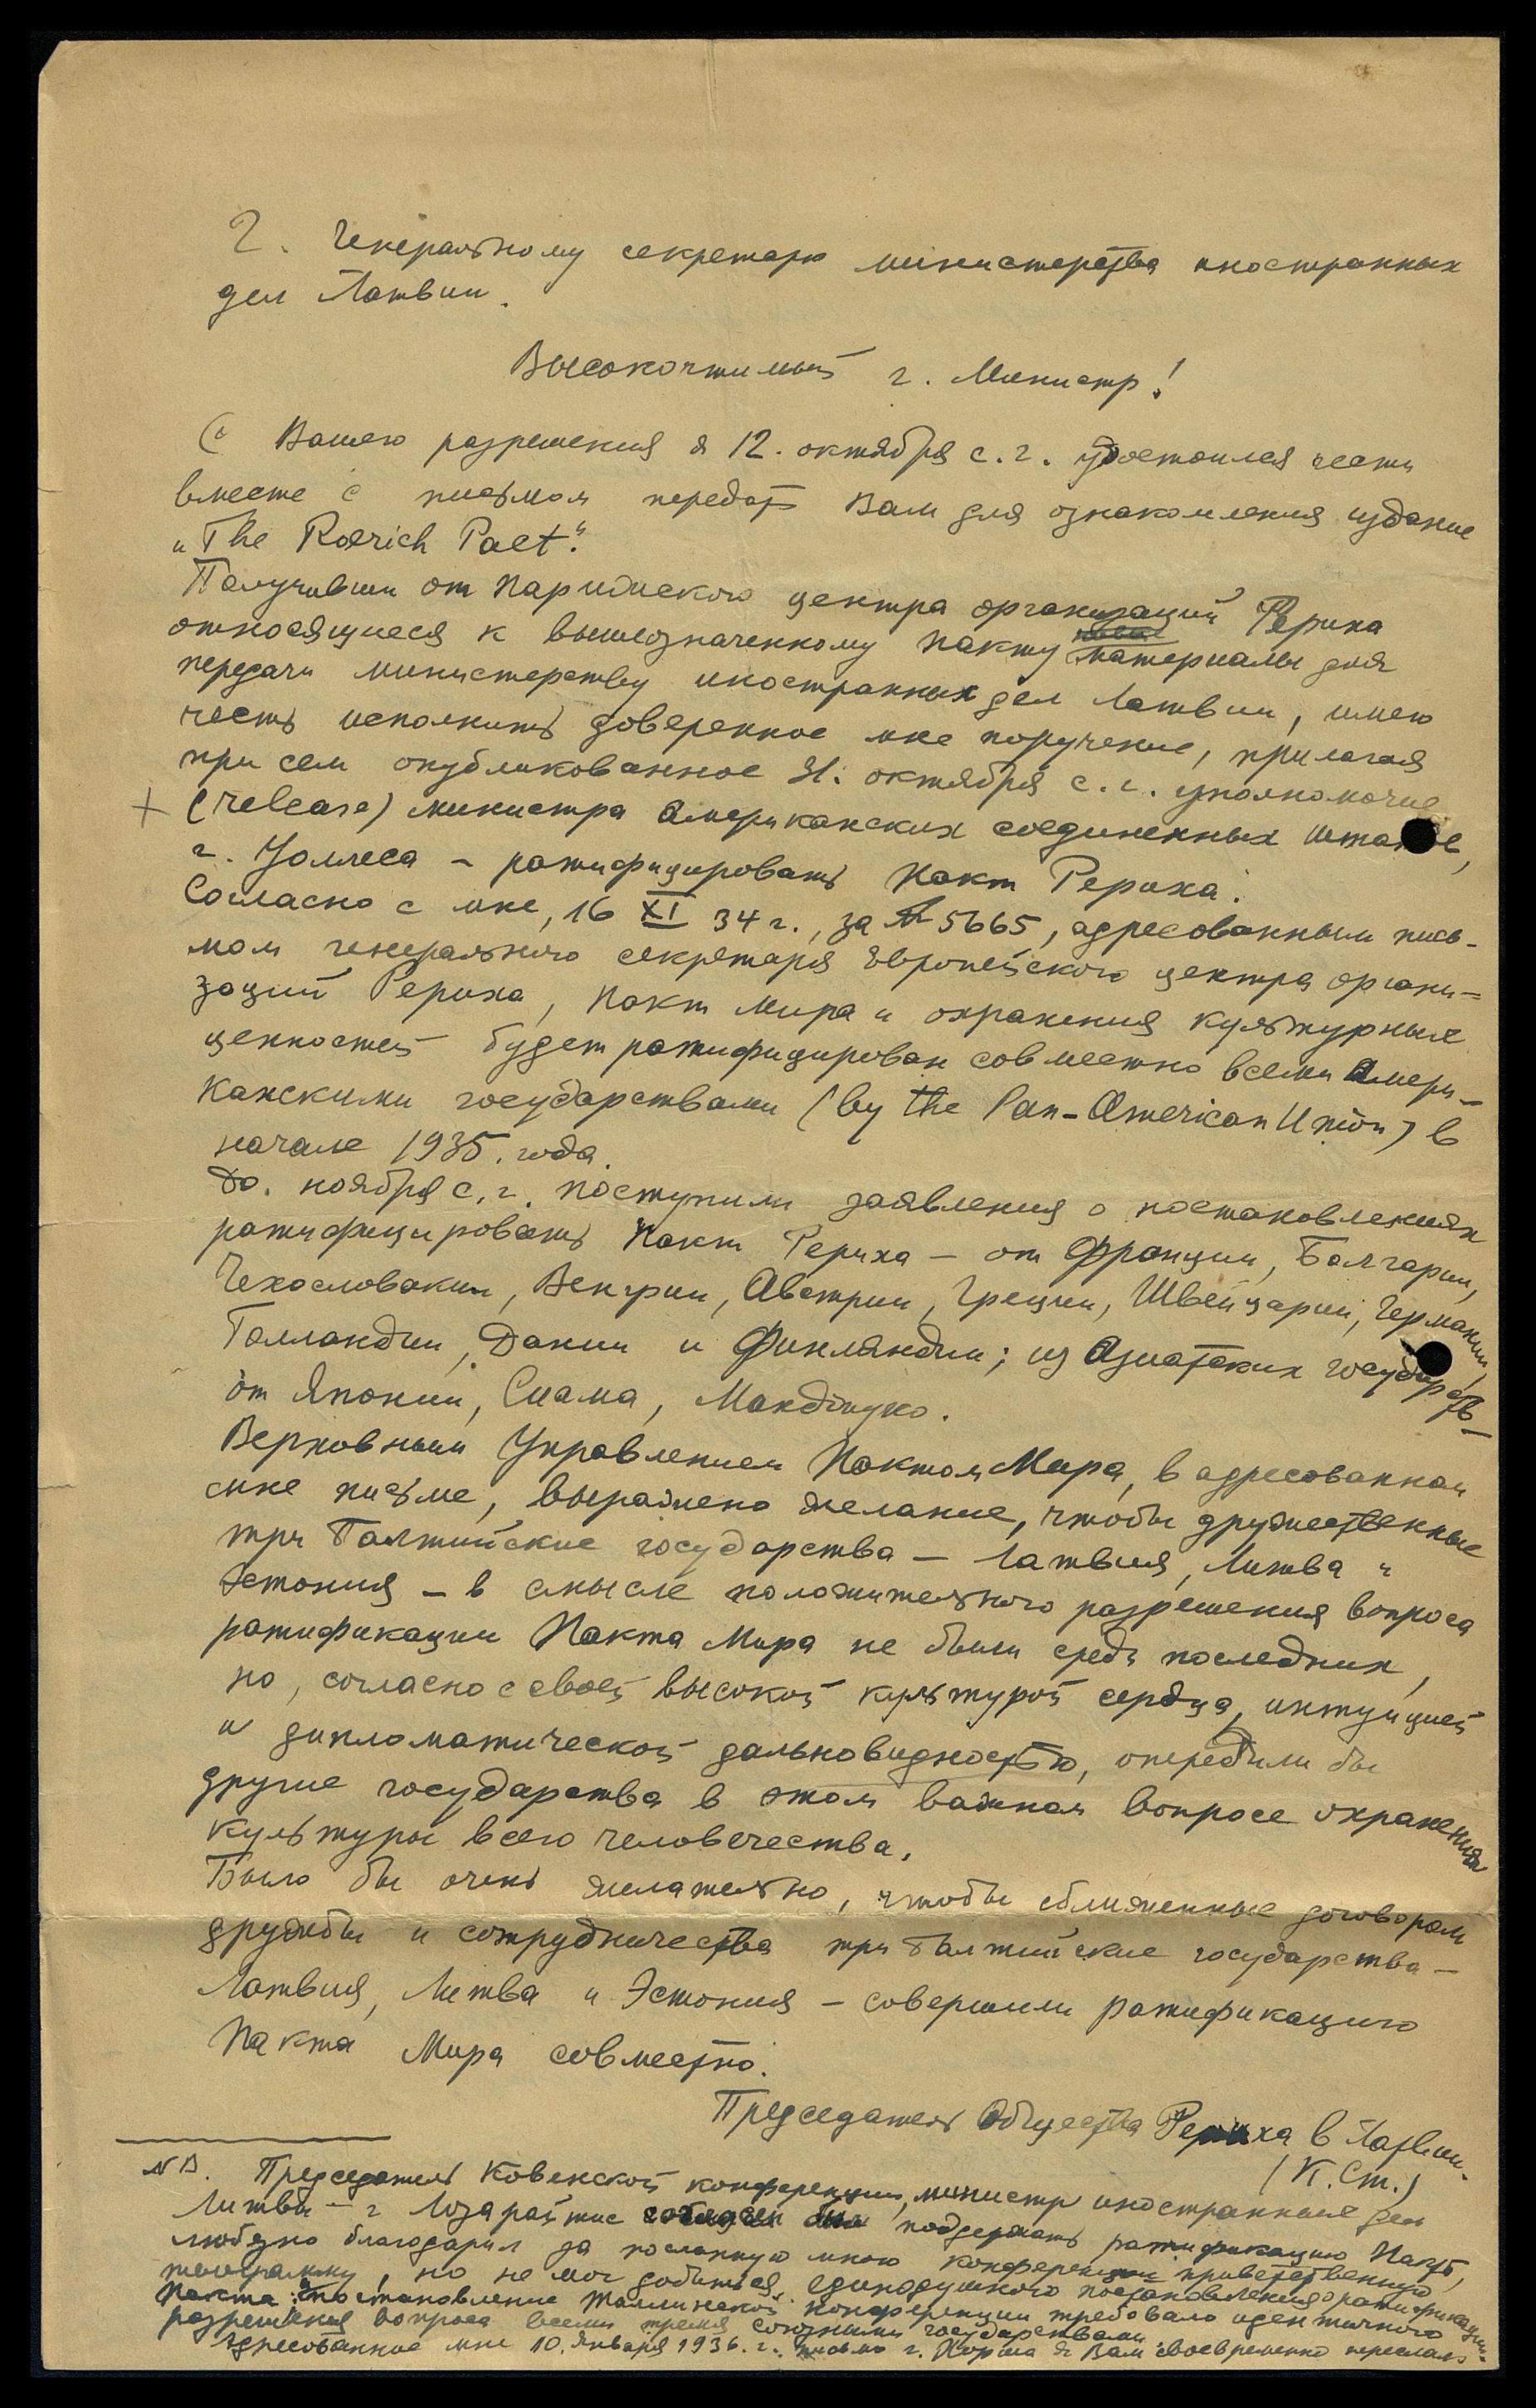 Г. Генеральному секретарю министерства иностранных
дел Латвии.
Высокочтимый г. Министр!
С Вашего разрешения я 12. октября с.г. удостоился чести
вместе с письмом передать Вам для ознакомления издание
„The Roerich Pact".
Получивши от Парижского центра организаций Рериха
относящиеся к вышеозначенному пакту материалы для
передачи министерству иностранных дел Латвии, имею
честь исполнить доверенное мне поручение, прилагая
при сем опубликованное 31. октября с.г. уполномочие
+ (release) министра Американских соединенных штатов,
г. Уоллеса – ратифицировать Пакт Рериха.
Согласно с мне, 16 XI 34 г., за № 5665, адресованным пись-
мом генерального секретаря Европейского центра органи-
заций Рериха, Пакт Мира и охранения культурных
ценностей будет ратифицирован совместно всеми Амери-
канскими государствами (by the Pan-American Union) в
начале 1935. года.
До. ноября с.г. поступили заявления о постановлениях
ратифицировать Пакт Рериха – от Франции, Болгарии,
Чехословакии, Венгрии, Австрии, Греции, Швейцарии, Германии,
Голландии, Дании и Финляндии; из Азиатских государств –
от Японии, Сиама, Мандіжуко.
Верховным Управлением Пактом Мира, в адресованном
мне письме, выражено желание, чтобы дружественные
три Балтийские государства – Латвия, Литва и
Эстония – в смысле положительного разрешения вопроса
ратификации Пакта Мира не были средь последних,
но, согласно с своей высокой культурой сердца, интуицией
и дипломатической дальновидностью, опередили бы
другие государства в этом важном вопросе охранения
культуры всего человечества.
Было бы очень желательно, чтобы сближенные договором
дружбы и сотрудничества три Балтийские государства –
Латвия, Литва и Эстония – совершили ратификацию
Пакта Мира совместно.
Председатель Общества Рериха в Латвии.
(К. Ст.)
NB. Председатель Ковенской конференции, министр иностранных дел
Литвы – г Лозарайтис поддержать ратификацию Пакта,
любезно благодарил за посланную мною конференции приветственную
телеграмму, но не мог добиться единодушного постановления о ратификации
Пакта: Постановление Таллинской конференции требовало идентичного
разрешения вопроса всеми тремя союзными государствами.
Адресованное мне 10. января 1936. г. письмо г. я Вам своевременно переслал.